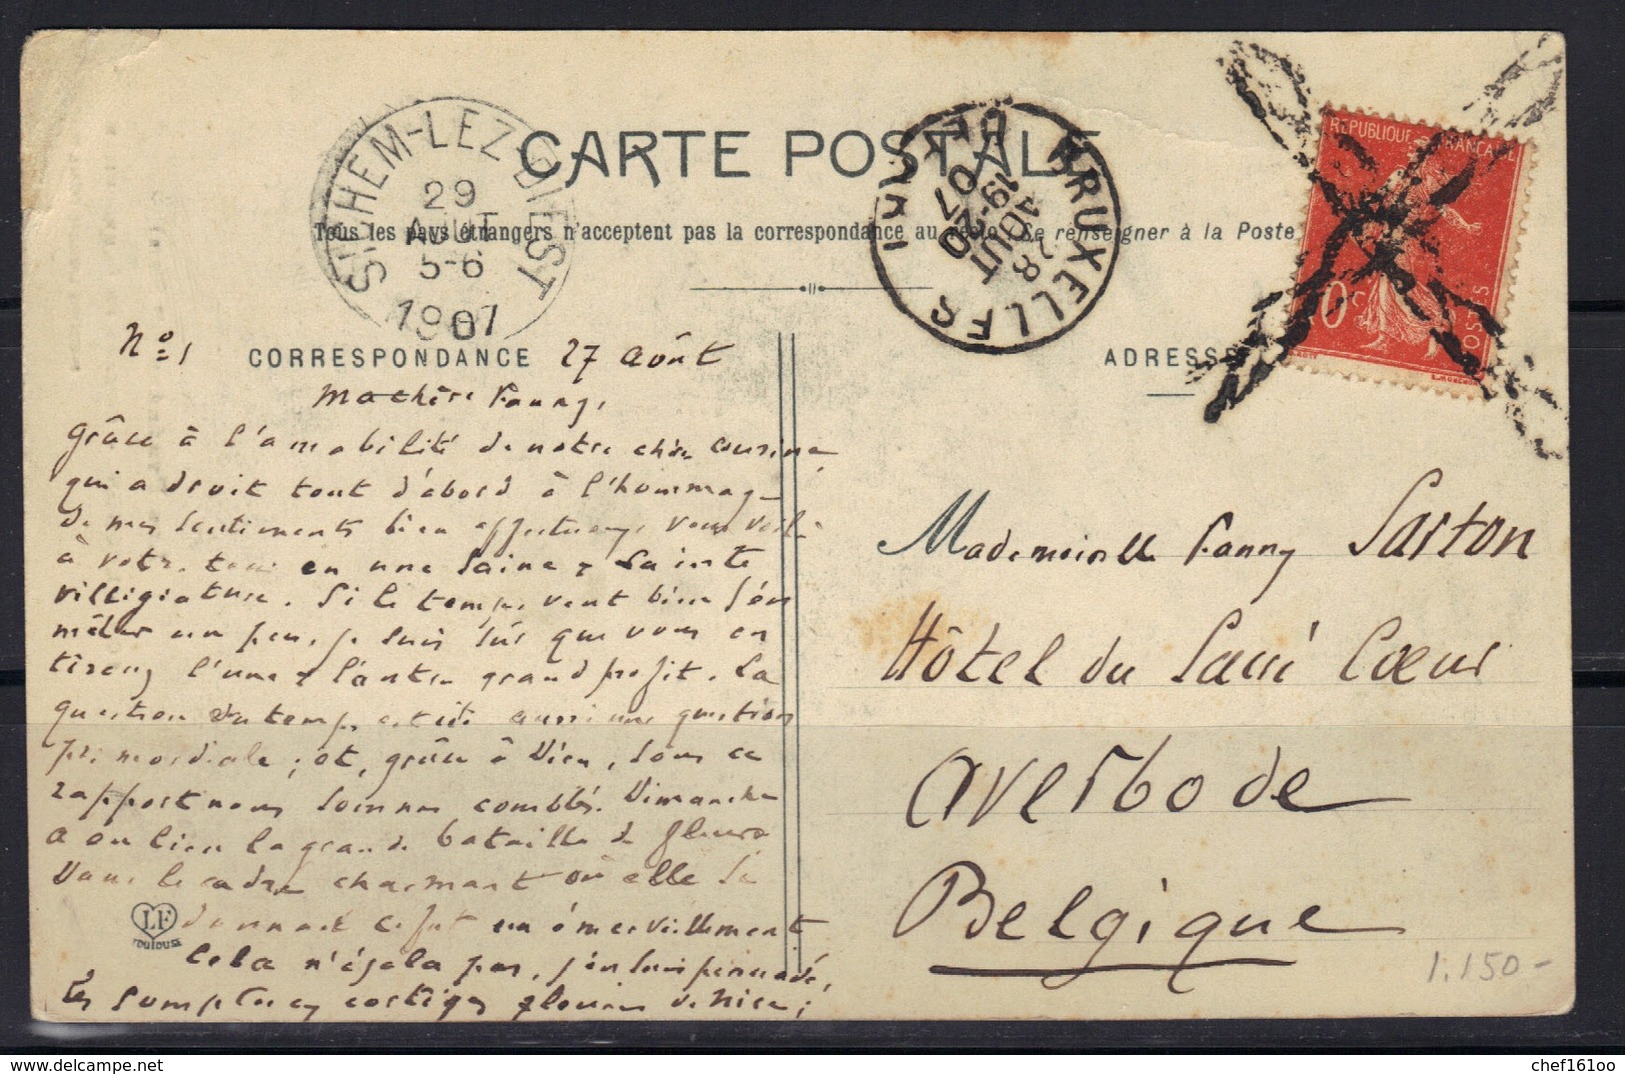 CARTE POSTALE
Tous les pays étrangers n'acceptent pas la correspondance au recto. Se renseigner à la Poste
SICHEM-LEZ-DIEST
29
AOUT
5-6
1907
BRUXELLES
28
AOUT
19-20
07
REPUBLIQUE FRANCAISE
POSTES
10c
CORRESPONDANCE
ADRESSE
No 1
27 août
Ma chère Fanny,
grâce à l'amabilité de notre chère cousine,
qui a droit tout d'abord à l'hommage
de mes sentiments bien affectueux, vous voilà
à votre tour en une saine & sainte
villégiature. Si le temps veut bien s'en
mêler un peu, je suis sûr que vous en
tirerez l'une & l'autre grand profit. La
question du temps est ici aussi une question
primordiale ; et, grâce à Dieu, sous ce
rapport nous sommes comblés. Dimanche
a eu lieu la grande bataille de fleurs
Dans le cadre charmant où elle se
donnait ce fut un émerveillement
Cela n'égala pas, j'en suis persuadé,
les somptueux cortèges fleuris de Nice ;
LF
TOULOUSE
Mademoiselle Fanny Sarton
Hôtel du Sacré Coeur
Averbode
Belgique
1.150-
delcampe.net
chef16100